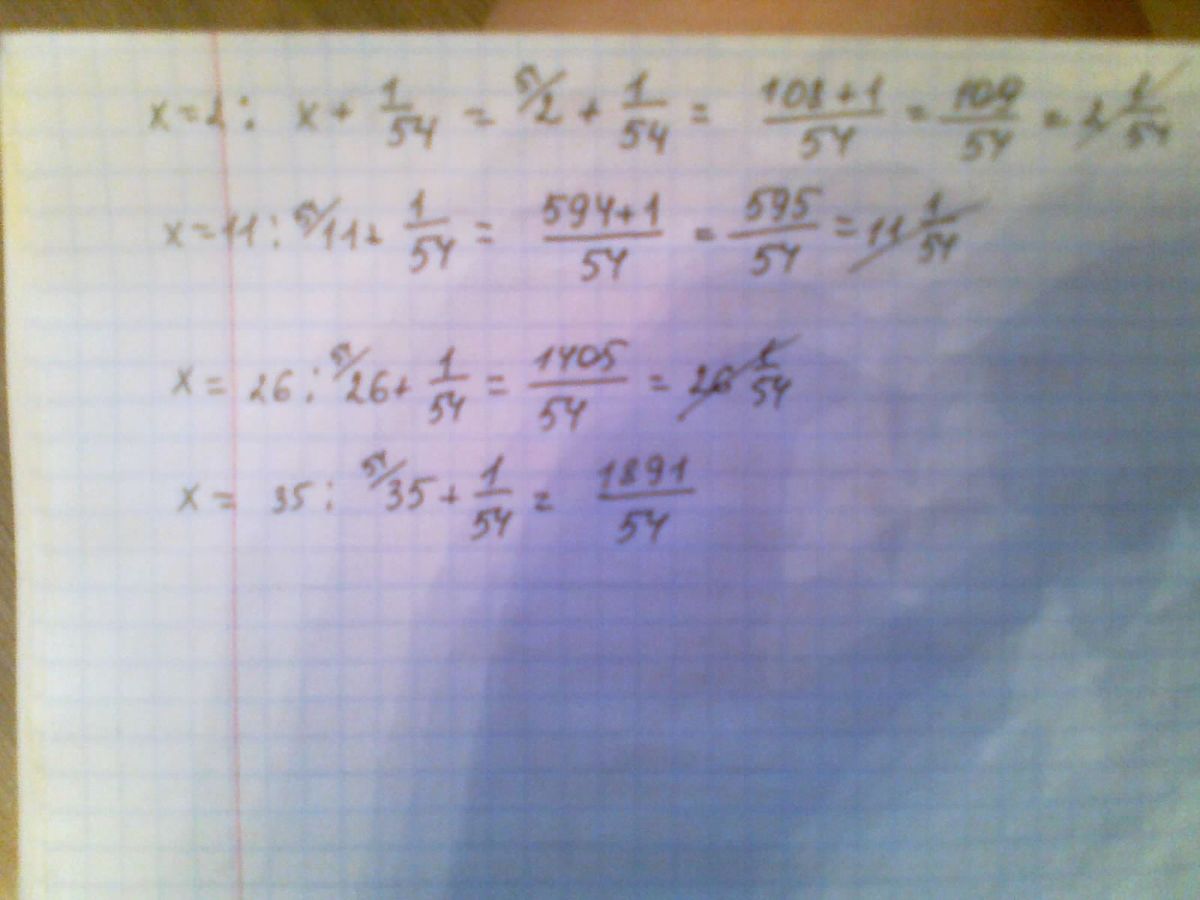 x=2: x + 1/54 = 54/ 2 + 1/54 = (108+1)/54 = 109/54 = 2 1/54
x=11: 54/ 11 + 1/54 = (594+1)/54 = 595/54 = 11 1/54
x = 26: 54/ 26 + 1/54 = 1405/54 = 26 1/54
x = 35: 54/ 35 + 1/54 = 1891/54